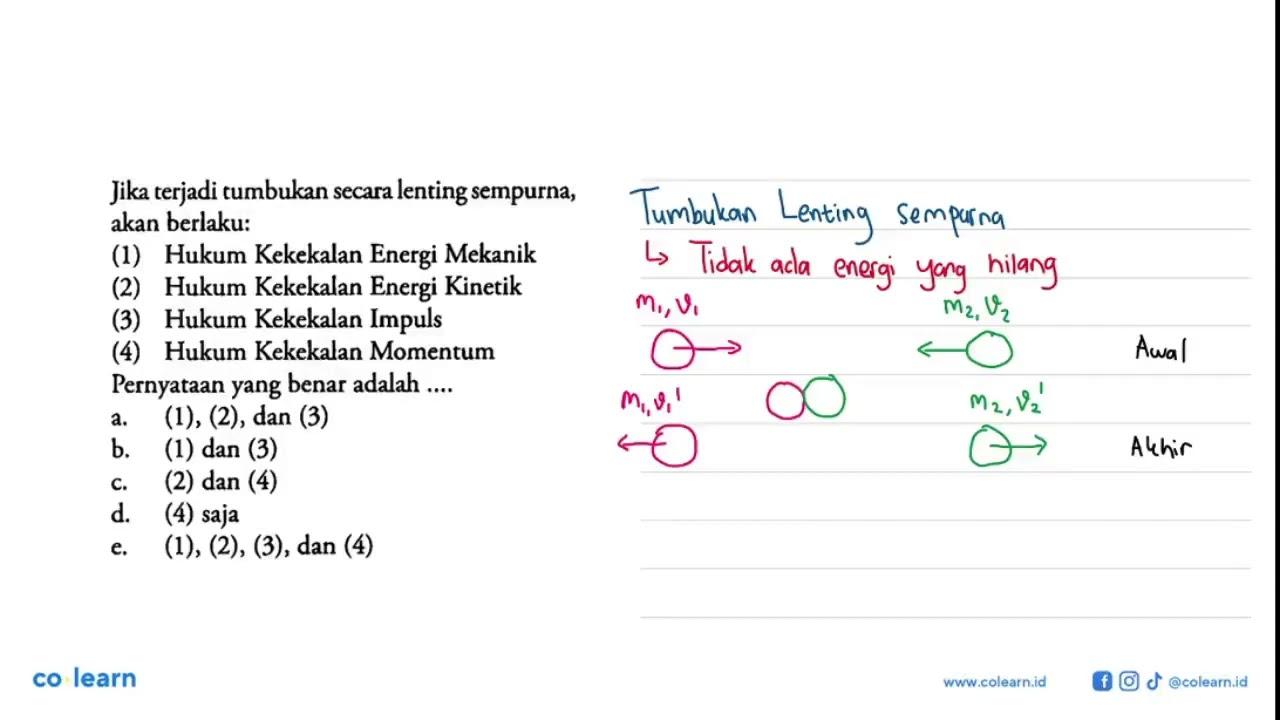 Jika terjadi tumbukan secara lenting sempurna,
akan berlaku:
(1) Hukum Kekekalan Energi Mekanik
(2) Hukum Kekekalan Energi Kinetik
(3) Hukum Kekekalan Impuls
(4) Hukum Kekekalan Momentum
Pernyataan yang benar adalah ....
a. (1), (2), dan (3)
b. (1) dan (3)
c. (2) dan (4)
d. (4) saja
e. (1), (2), (3), dan (4)
Tumbukan Lenting sempurna
↳ Tidak ada energi yang hilang
m₁, v₁ m₂, v₂
Awal
m₁, v₁' m₂, v₂'
Akhir
co learn
www.colearn.id @colearn.id